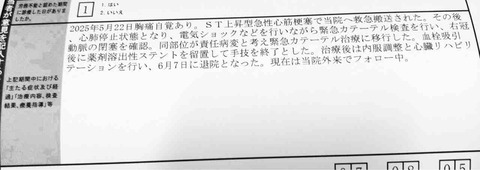 労務不能と認めた期間
に診療した日がありま
したか。
1
1. はい
2. いいえ
上記期間中における
「主たる症状及び経
過」「治療内容、検査
結果、療養指導」等
2025年5月22日胸痛自覚あり。ST上昇型急性心筋梗塞で当院へ救急搬送された。その後
、心肺停止状態となり、電気ショックなどを行いながら緊急カテーテル検査を行い、右冠
動脈の閉塞を確認。同部位が責任病変と考え緊急カテーテル治療に移行した。血栓吸引
後に薬剤溶出性ステントを留置して手技を終了した。治療後は内服調整と心臓リハビリ
テーションを行い、6月7日に退院となった。現在は当院外来でフォロー中。